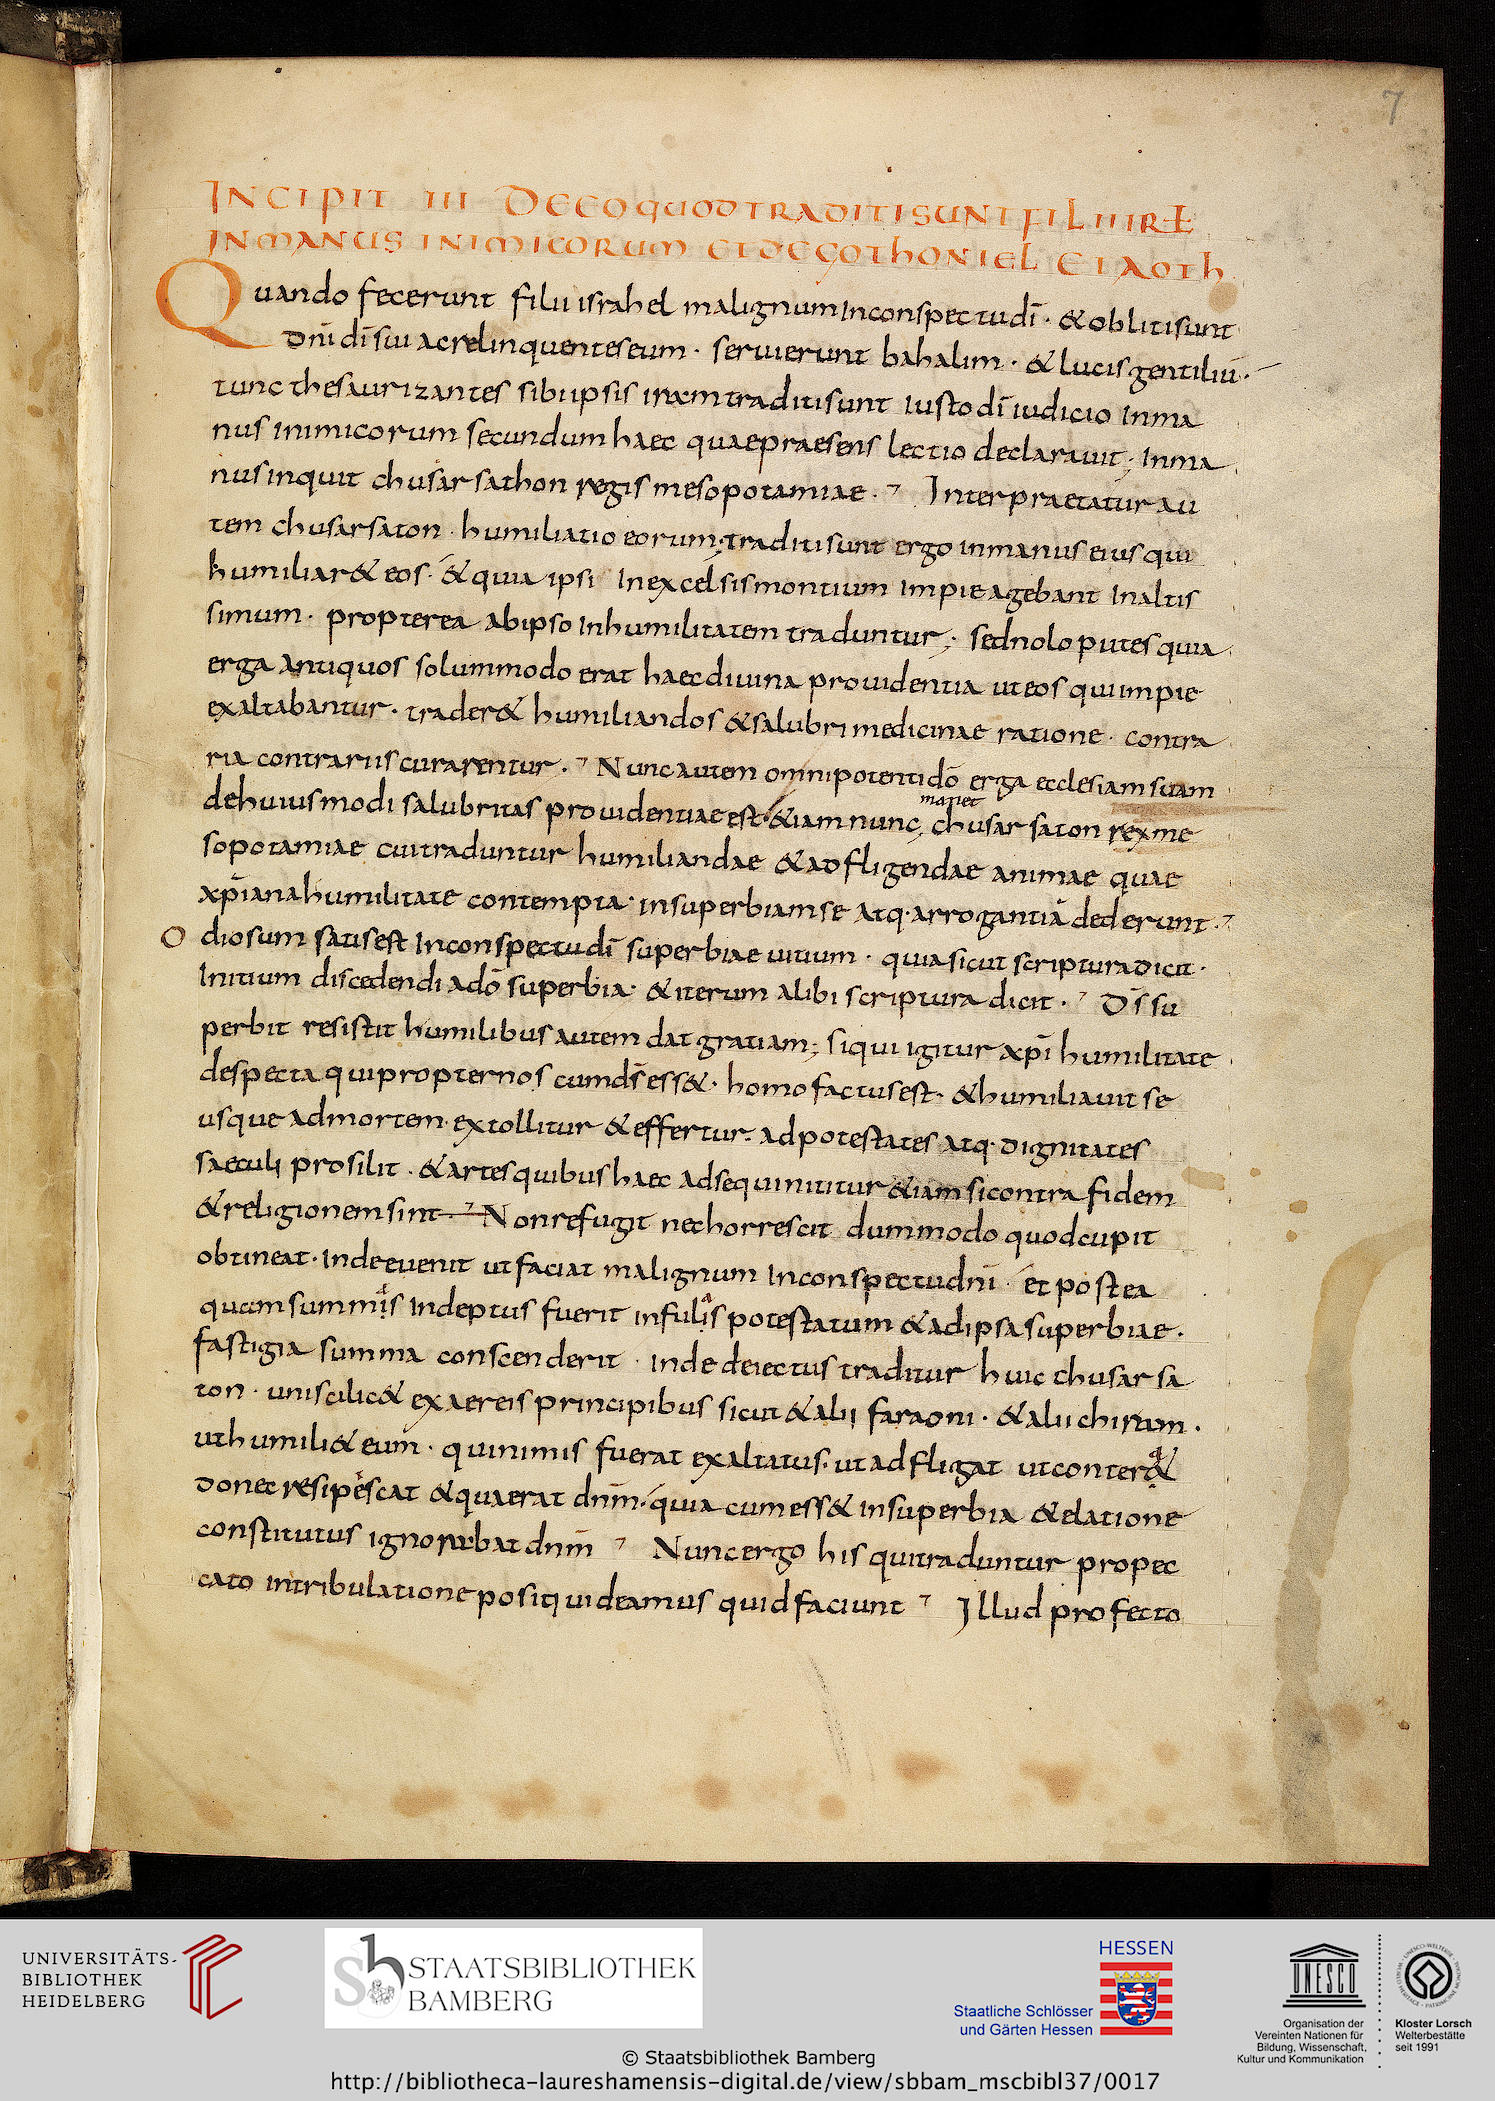 7
INCIPIT III DE EO QUOD TRADITI SUNT FILII IRƚ
IN MANUS INIMICORUM ET DE GOTHONIEL ET AOTH
Quando fecerunt filii israhel malignum inconspectu dī · & obliti sunt
dnī dī sui ac relinquentes eum · servierunt bahalim · & lucis gentiliū ·
tunc thesaurizantes sibi ipsis iram traditi sunt iusto dī iudicio inma
nus inimicorum secundum haec quae praesens lectio declaravit; Inma
nus inquit chusarsathon regis mesopotamiae · ⁊ Interpraetatur au
tem chusarsaton · humiliatio eorum; traditi sunt ergo inmanus eius qui
humiliar& eos · & quia ipsi In excelsis montium impie agebant Inaltis
simum · propterea abipso Inhumilitatem traduntur; sed nolo putes quia
erga antiquos solummodo erat haec divina providentia uteos qui impie
exaltabantur · trader& humiliandos & salubri medicinae ratione · contra
ria contrariis curarentur · ⁊ Nunc autem omnipotenti dō erga ecclesiam suam
dehuiusmodi salubritas providentiae est · &iam nunc, chusarsaton rex me
manet
sopotamiae cui traduntur humiliandae & adfligendae animae quae
xp̄iana humilitate contempta · insuperbiam se atq· arrogantiā dederunt · ⁊
O diosum satis est Inconspectu dī superbiae vitium · quia sicut scriptura dicit ·
Initium discedendi adō superbia · & iterum alibi scriptura dicit · ⁊ Ds̄ su
perbit resistit humilibus autem dat gratiam; siqui igitur xpī humilitate
despecta qui propter nos cum ds̄ ess& · homo factus est · & humiliavit se
usque admortem · extollitur & effertur · ad potestates atq· dignitates
saeculi prosilit · & artes quibus haec adsequi nititur &iam si contra fidem
& religionem sint · ⁊ Non refugit nec horrescit dummodo quod cupit
obtineat · Inde evenit ut faciat malignum Inconspectu dnī · et postea
quam summis Indeptus fuerit infulis potestatum & ad ipsa superbiae ·
fastigia summa conscenderit · inde deiectus traditur huic chusarsa
ton · uni scilic& ex aereis principibus sicut & alii faraoni · & alii chiram ·
ut humili& eum · qui nimis fuerat exaltatus · ut adfligat ut conter&
donec resipescat & quaerat dnm̄ · quia cum ess& insuperbia & elatione
constitutus ignorabat dnm̄ ⁊ Nunc ergo his qui traduntur propec
cato intribulatione positi videamus quid faciunt ⁊ Illud profecto
UNIVERSITÄTS-
BIBLIOTHEK
HEIDELBERG
STAATSBIBLIOTHEK
BAMBERG
HESSEN
Staatliche Schlösser
und Gärten Hessen
UNESCO
Organisation der
Vereinten Nationen für
Bildung, Wissenschaft,
Kultur und Kommunikation
Kloster Lorsch
Welterbestätte
seit 1991
© Staatsbibliothek Bamberg
http://bibliotheca-laureshamensis-digital.de/view/sbbam_mscbibl37/0017